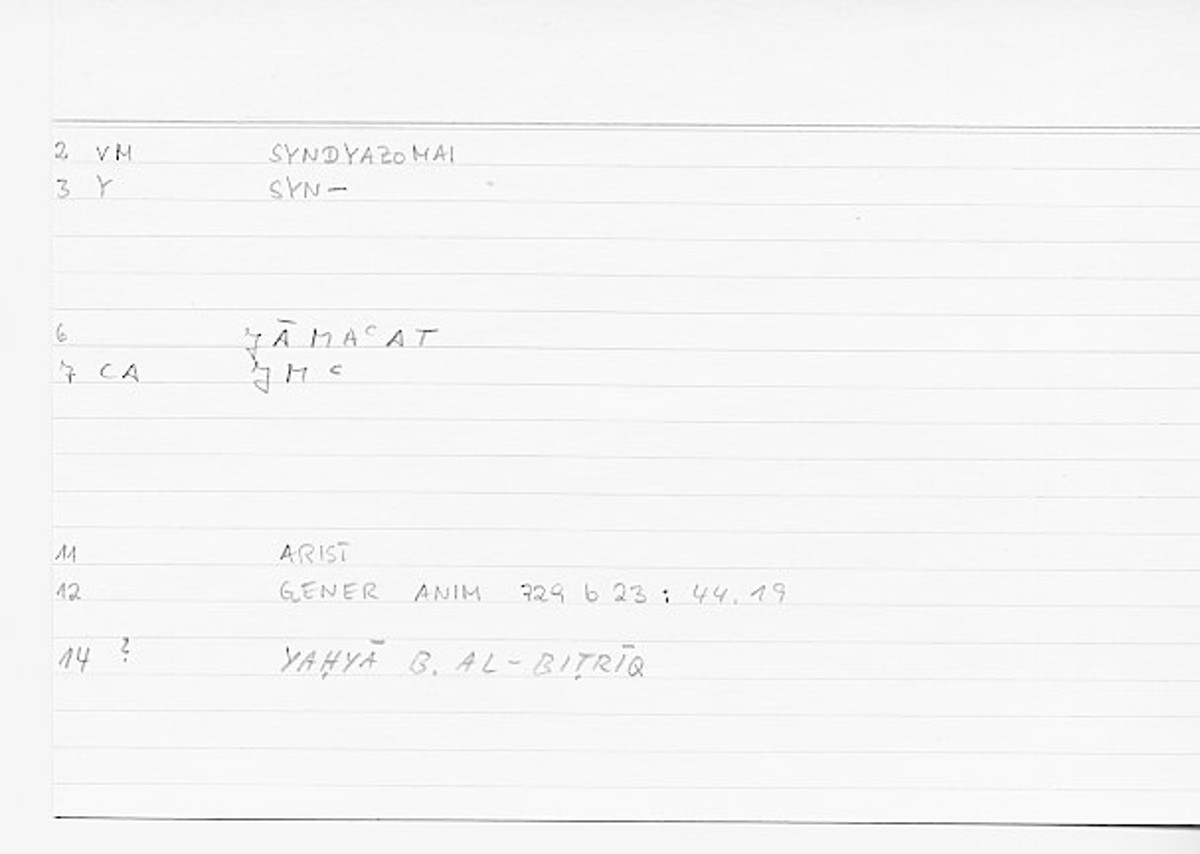 2 VM SYNDYAZOMAI
3 Y SYN—
6 ǦĀMAᶜAT
7 CA ǦMᶜ
11 ARIST
12 GENER ANIM 729 b 23 : 44.19
14 ? YAḤYĀ B. AL-BIṬRĪQ